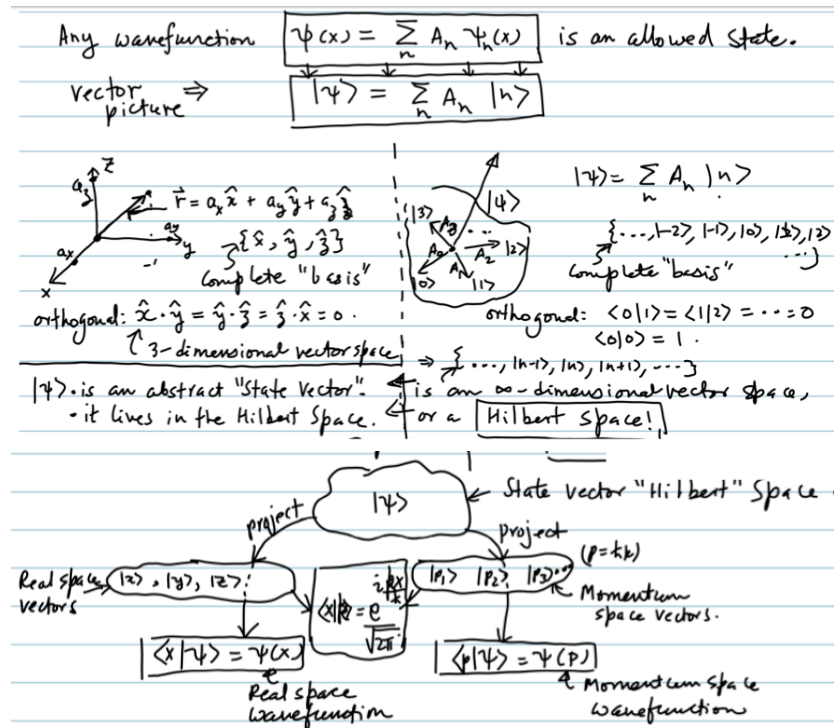 Any wavefunction ψ(x) = ∑ₙ Aₙ ψₙ(x) is an allowed state.
vector picture ⇒ |ψ⟩ = ∑ₙ Aₙ |n⟩
z
a_z
r⃗ = a_x x̂ + a_y ŷ + a_z ẑ
a_y
y
a_x
x
{x̂, ŷ, ẑ}
complete "basis"
orthogonal: x̂·ŷ = ŷ·ẑ = ẑ·x̂ = 0.
3-dimensional vector space
|ψ⟩
|3⟩ A₃ ...
A₀ A₂ |2⟩
A₁
|0⟩ |1⟩
|ψ⟩ = ∑ₙ Aₙ |n⟩
{..., |-2⟩, |-1⟩, |0⟩, |1⟩, |2⟩ ...}
complete "basis"
orthogonal: ⟨0|1⟩ = ⟨1|2⟩ = ... = 0
⟨0|0⟩ = 1.
⇒ {..., |n-1⟩, |n⟩, |n+1⟩, ...}
is an ∞-dimensional vector space,
or a Hilbert space!
|ψ⟩ · is an abstract "State vector".
· it lives in the Hilbert Space.
|ψ⟩
State vector "Hilbert" Space
project
project
(p=ħk)
Real space vectors
, |y⟩, |z⟩
|p₁⟩ |p₂⟩, |p₃⟩...
Momentum
space vectors.
⟨x|ψ⟩ = ψ(x)
⟨p|ψ⟩ = ψ(p)
Real space
wavefunction
Momentum space
wavefunction